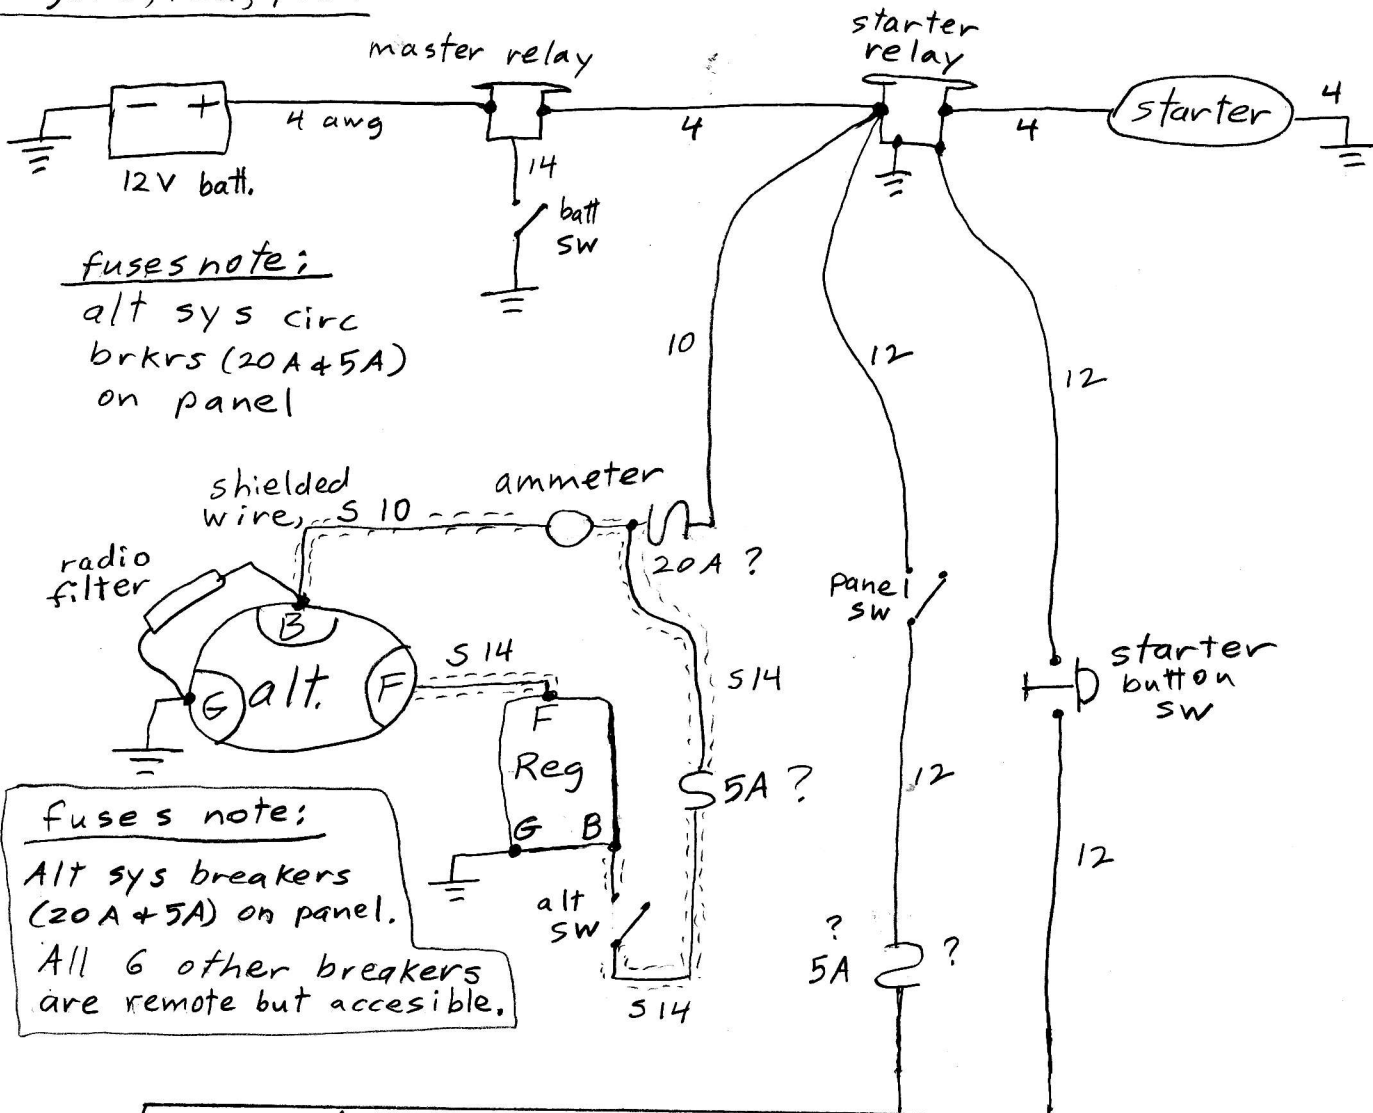 master relay
starter
relay
- +
4 awg
4
4
starter
4
12V batt.
14
batt
sw
fuses note:
alt sys circ
brkrs (20A & 5A)
on panel
10
12
12
shielded
wire,
S 10
ammeter
20A ?
radio
filter
B
S 14
alt.
G
F
F
Reg
G B
S14
Panel
sw
starter
button
sw
5A ?
12
12
fuses note:
Alt sys breakers
(20A & 5A) on panel.
All 6 other breakers
are remote but accesible.
alt
sw
S 14
?
5A
?